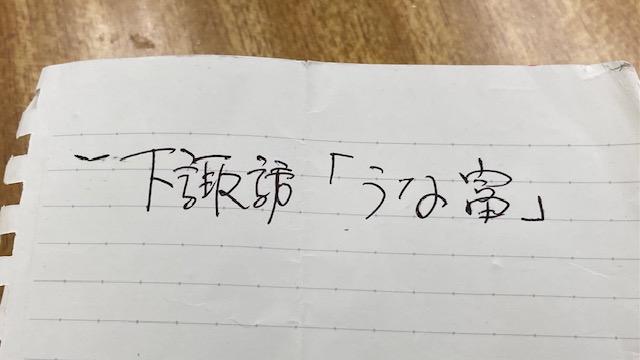 下諏訪「うな富」